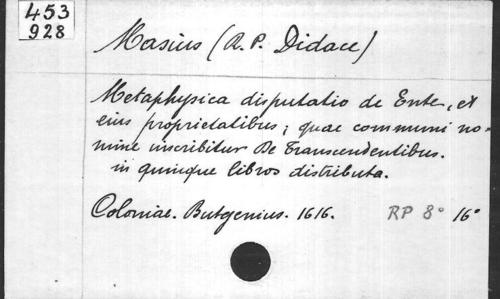 453
928
Masius (R. P. Didace)
Metaphysica disputatio de Ente, et
eius proprietatibus; quae communi no-
mine inscribitur De Transcendentibus.
in quinque libros distributa.
Coloniae. Butgenius. 1616. RP 8° 16°